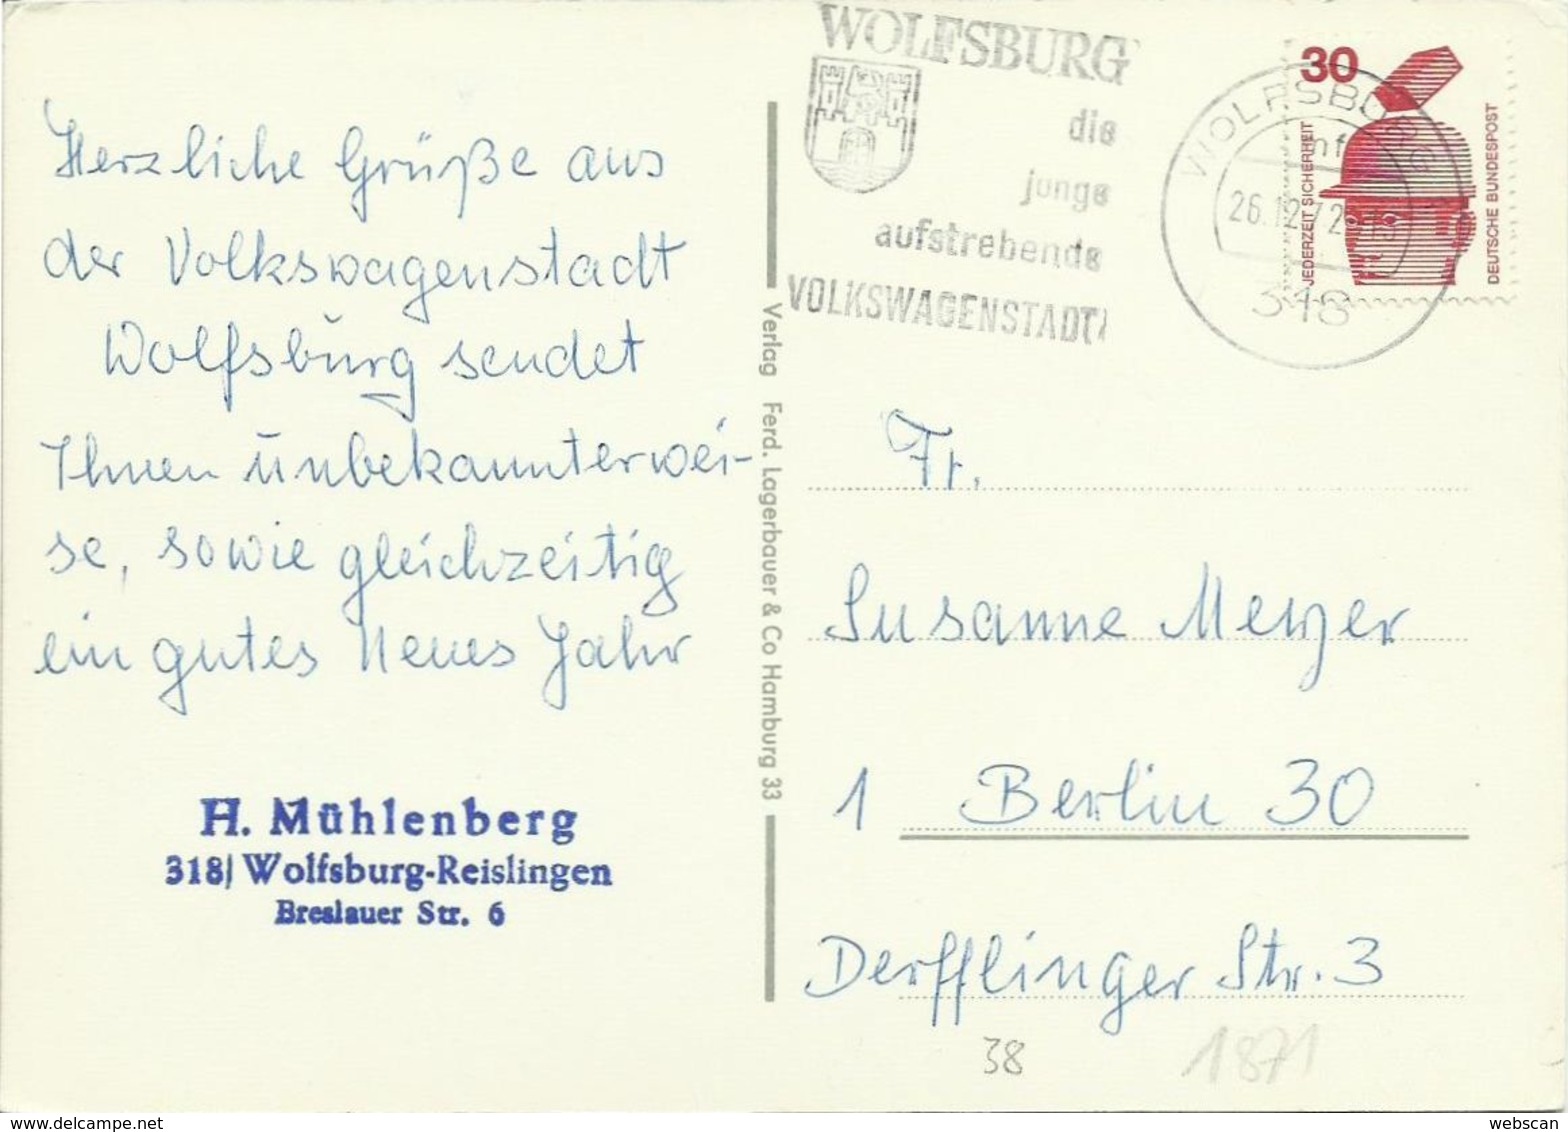 Herzliche Grüße aus
der Volkswagenstadt
Wolfsburg sendet
Ihnen unbekannterwei-
se, sowie gleichzeitig
ein gutes Neues Jahr
H. Mühlenberg
318/ Wolfsburg-Reislingen
Breslauer Str. 6
Verlag Ferd. Lagerbauer & Co Hamburg 33
WOLFSBURG
die
junge
aufstrebende
VOLKSWAGENSTADT
WOLFSBURG
26.12.72
318
30
JEDERZEIT SICHERHEIT
DEUTSCHE BUNDESPOST
Fr.
Susanne Meyer
1 Berlin 30
Derfflinger Str. 3
38
1871
www.delcampe.net
webscan